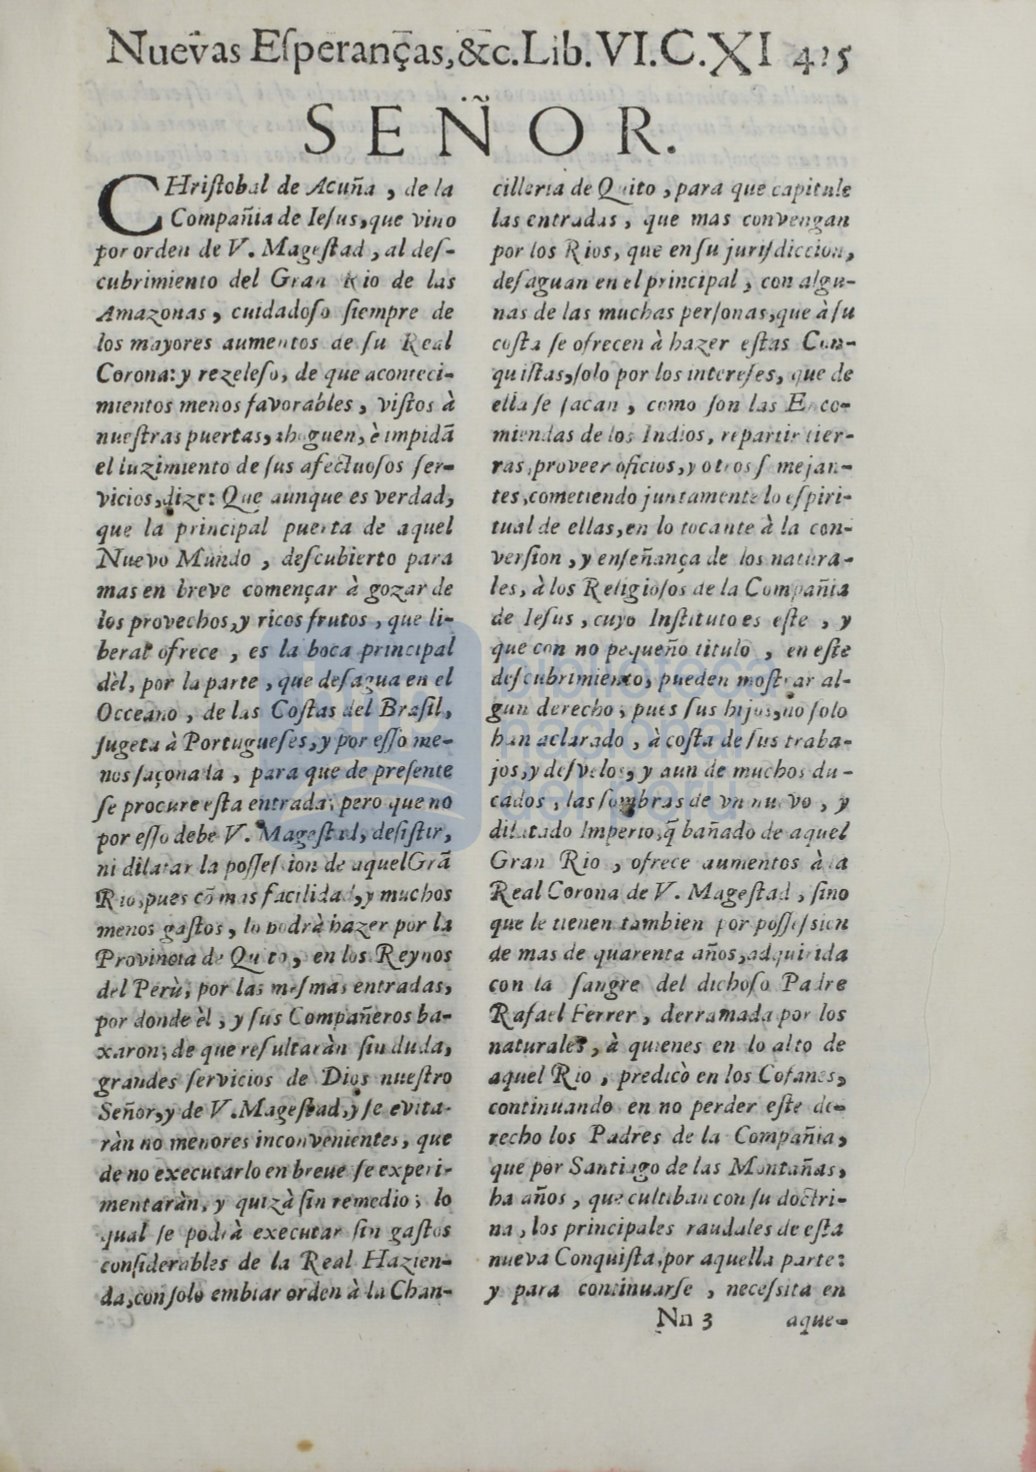 Nuevas Eſperanças, &c. Lib. VI. C. XI 425
SEÑOR.
CHriſtobal de Acuña, de la
Compañia de Ieſus, que vino
por orden de V. Mageſtad, al deſ-
cubrimiento del Gran Rio de las
Amazonas, cuidadoſo ſiempre de
los mayores aumentos de ſu Real
Corona: y rezeleſo, de que aconteci-
mientos menos favorables, viſtos à
nueſtras puertas, ahoguen, è impidā
el luzimiento de ſus afectuoſos ſer-
vicios, dize: Que aunque es verdad,
que la principal puerta de aquel
Nuevo Mundo, deſcubierto para
mas en breve començar à gozar de
los provechos, y ricos frutos, que li-
beral ofrece, es la boca principal
dèl, por la parte, que deſagua en el
Occeano, de las Coſtas del Braſil,
ſugeta à Portugueſes, y por eſſo me-
nos ſaçonada, para que de preſente
ſe procure eſta entrada; pero que no
por eſſo debe V. Mageſtad, deſiſtir,
ni dilatar la poſſeſsion de aquel Grā
Rio, pues cō mas facilidad, y muchos
menos gaſtos, lo podrà hazer por la
Provincia de Quito, en los Reynos
del Perù, por las meſmas entradas,
por donde èl, y ſus Compañeros ba-
xaron; de que reſultaràn ſin duda,
grandes ſervicios de Dios nueſtro
Señor, y de V. Mageſtad, y ſe evita-
ràn no menores inconvenientes, que
de no executarlo en breue ſe experi-
mentaràn, y quizà ſin remedio; lo
qual ſe podrà executar ſin gaſtos
conſiderables de la Real Hazien-
da, con ſolo embiar orden à la Chan-
cilleria de Quito, para que capitule
las entradas, que mas convengan
por los Rios, que en ſu juriſdiccion,
deſaguan en el principal, con algu-
nas de las muchas perſonas, que à ſu
coſta ſe ofrecen à hazer eſtas Con-
quiſtas, ſolo por los intereſes, que de
ella ſe ſacan, como ſon las Enco-
miendas de los Indios, repartir tier-
ras, proveer oficios, y otros ſemejan-
tes, cometiendo juntamente lo eſpiri-
tual de ellas, en lo tocante à la con-
verſion, y enſeñança de los natura-
les, à los Religioſos de la Compañia
de Ieſus, cuyo Inſtituto es eſte, y
que con no pequeño titulo, en eſte
deſcubrimiento, pueden moſtrar al-
gun derecho, pues ſus hijos, no ſolo
han aclarado, à coſta de ſus traba-
jos, y deſvelos, y aun de muchos du-
cados, las ſombras de vn nuevo, y
dilatado Imperio, q̄ bañado de aquel
Gran Rio, ofrece aumentos à la
Real Corona de V. Mageſtad, ſino
que le tienen tambien por poſſeſsion
de mas de quarenta años, adquirida
con la ſangre del dichoſo Padre
Rafael Ferrer, derramada por los
naturales, à quienes en lo alto de
aquel Rio, predicò en los Cofanes,
continuando en no perder eſte de-
recho los Padres de la Compañia,
que por Santiago de las Montañas,
ha años, que cultiban con ſu doctri-
na, los principales raudales de eſta
nueva Conquiſta, por aquella parte:
y para continuarſe, neceſsita en
Nn 3 aque-
biblioteca
nacional
del perú